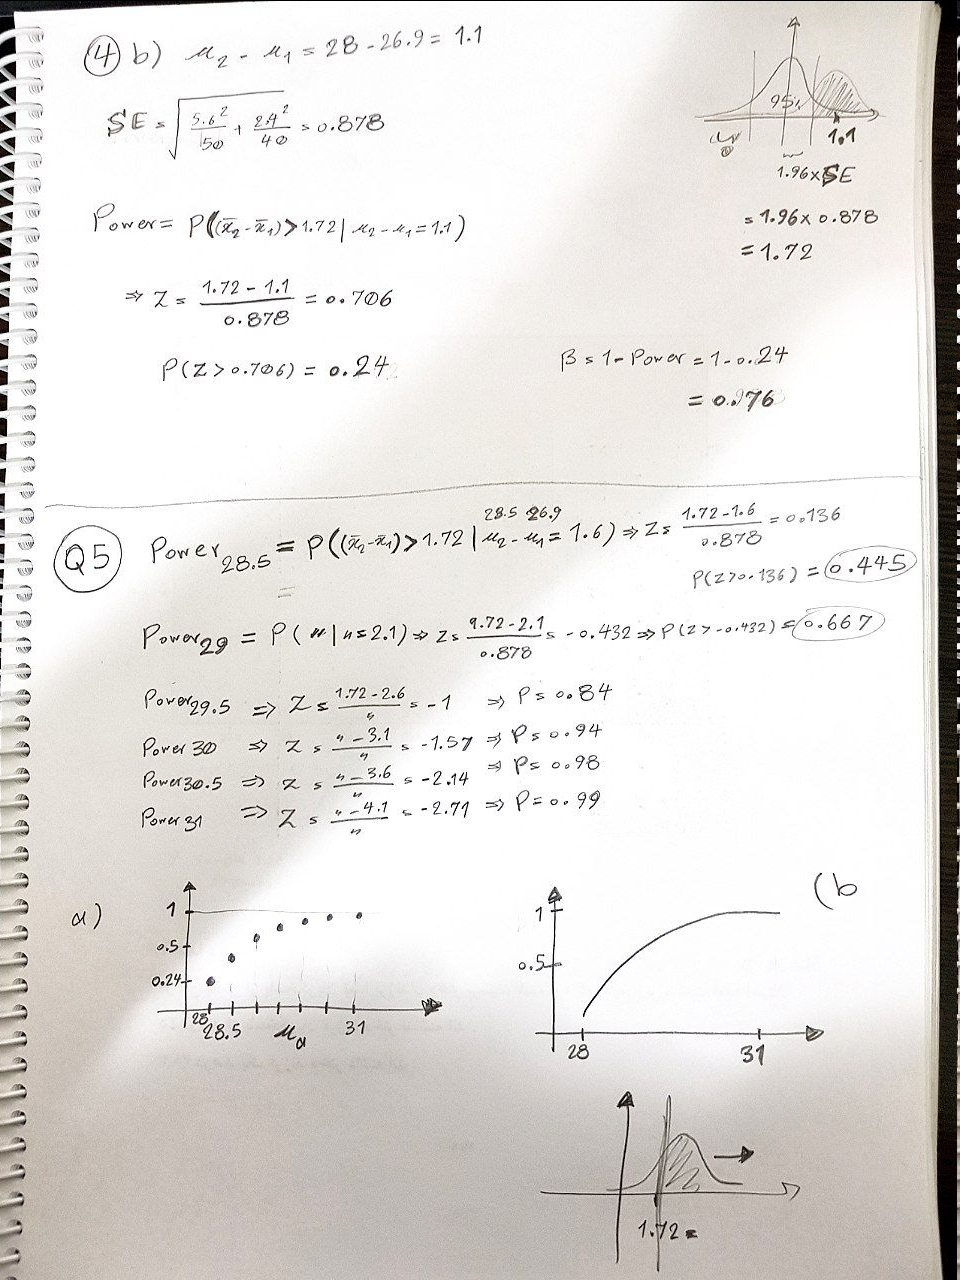 ④ b) μ₂ - μ₁ = 28 - 26.9 = 1.1
SE = √(5.6²/50 + 2.4²/40) = 0.878
95%
1.1
1.96×SE
= 1.96×0.878
= 1.72
Power = P((x̄₂-x̄₁)>1.72 | μ₂-μ₁=1.1)
⇒ Z = (1.72-1.1)/0.878 = 0.706
P(Z>0.706) = 0.24
β = 1-Power = 1-0.24
= 0.76
Q5
28.5 26.9
Power28.5 = P((x̄₂-x̄₁)>1.72 | μ₂-μ₁= 1.6) ⇒ Z= (1.72-1.6)/0.878 = 0.136
P(Z>0.136) = 0.445
Power29 = P( " | "=2.1) ⇒ Z= (1.72-2.1)/0.878 = -0.432 ⇒ P(Z>-0.432) = 0.667
Power29.5 ⇒ Z = (1.72-2.6)/" = -1 ⇒ P= 0.84
Power30 ⇒ Z = ("-3.1)/" = -1.57 ⇒ P= 0.94
Power30.5 ⇒ Z = ("-3.6)/" = -2.14 ⇒ P= 0.98
Power31 ⇒ Z = ("-4.1)/" = -2.71 ⇒ P= 0.99
a)
1
0.5
0.24
28
28.5 μa 31
(b
1
0.5
28 31
1.72 =